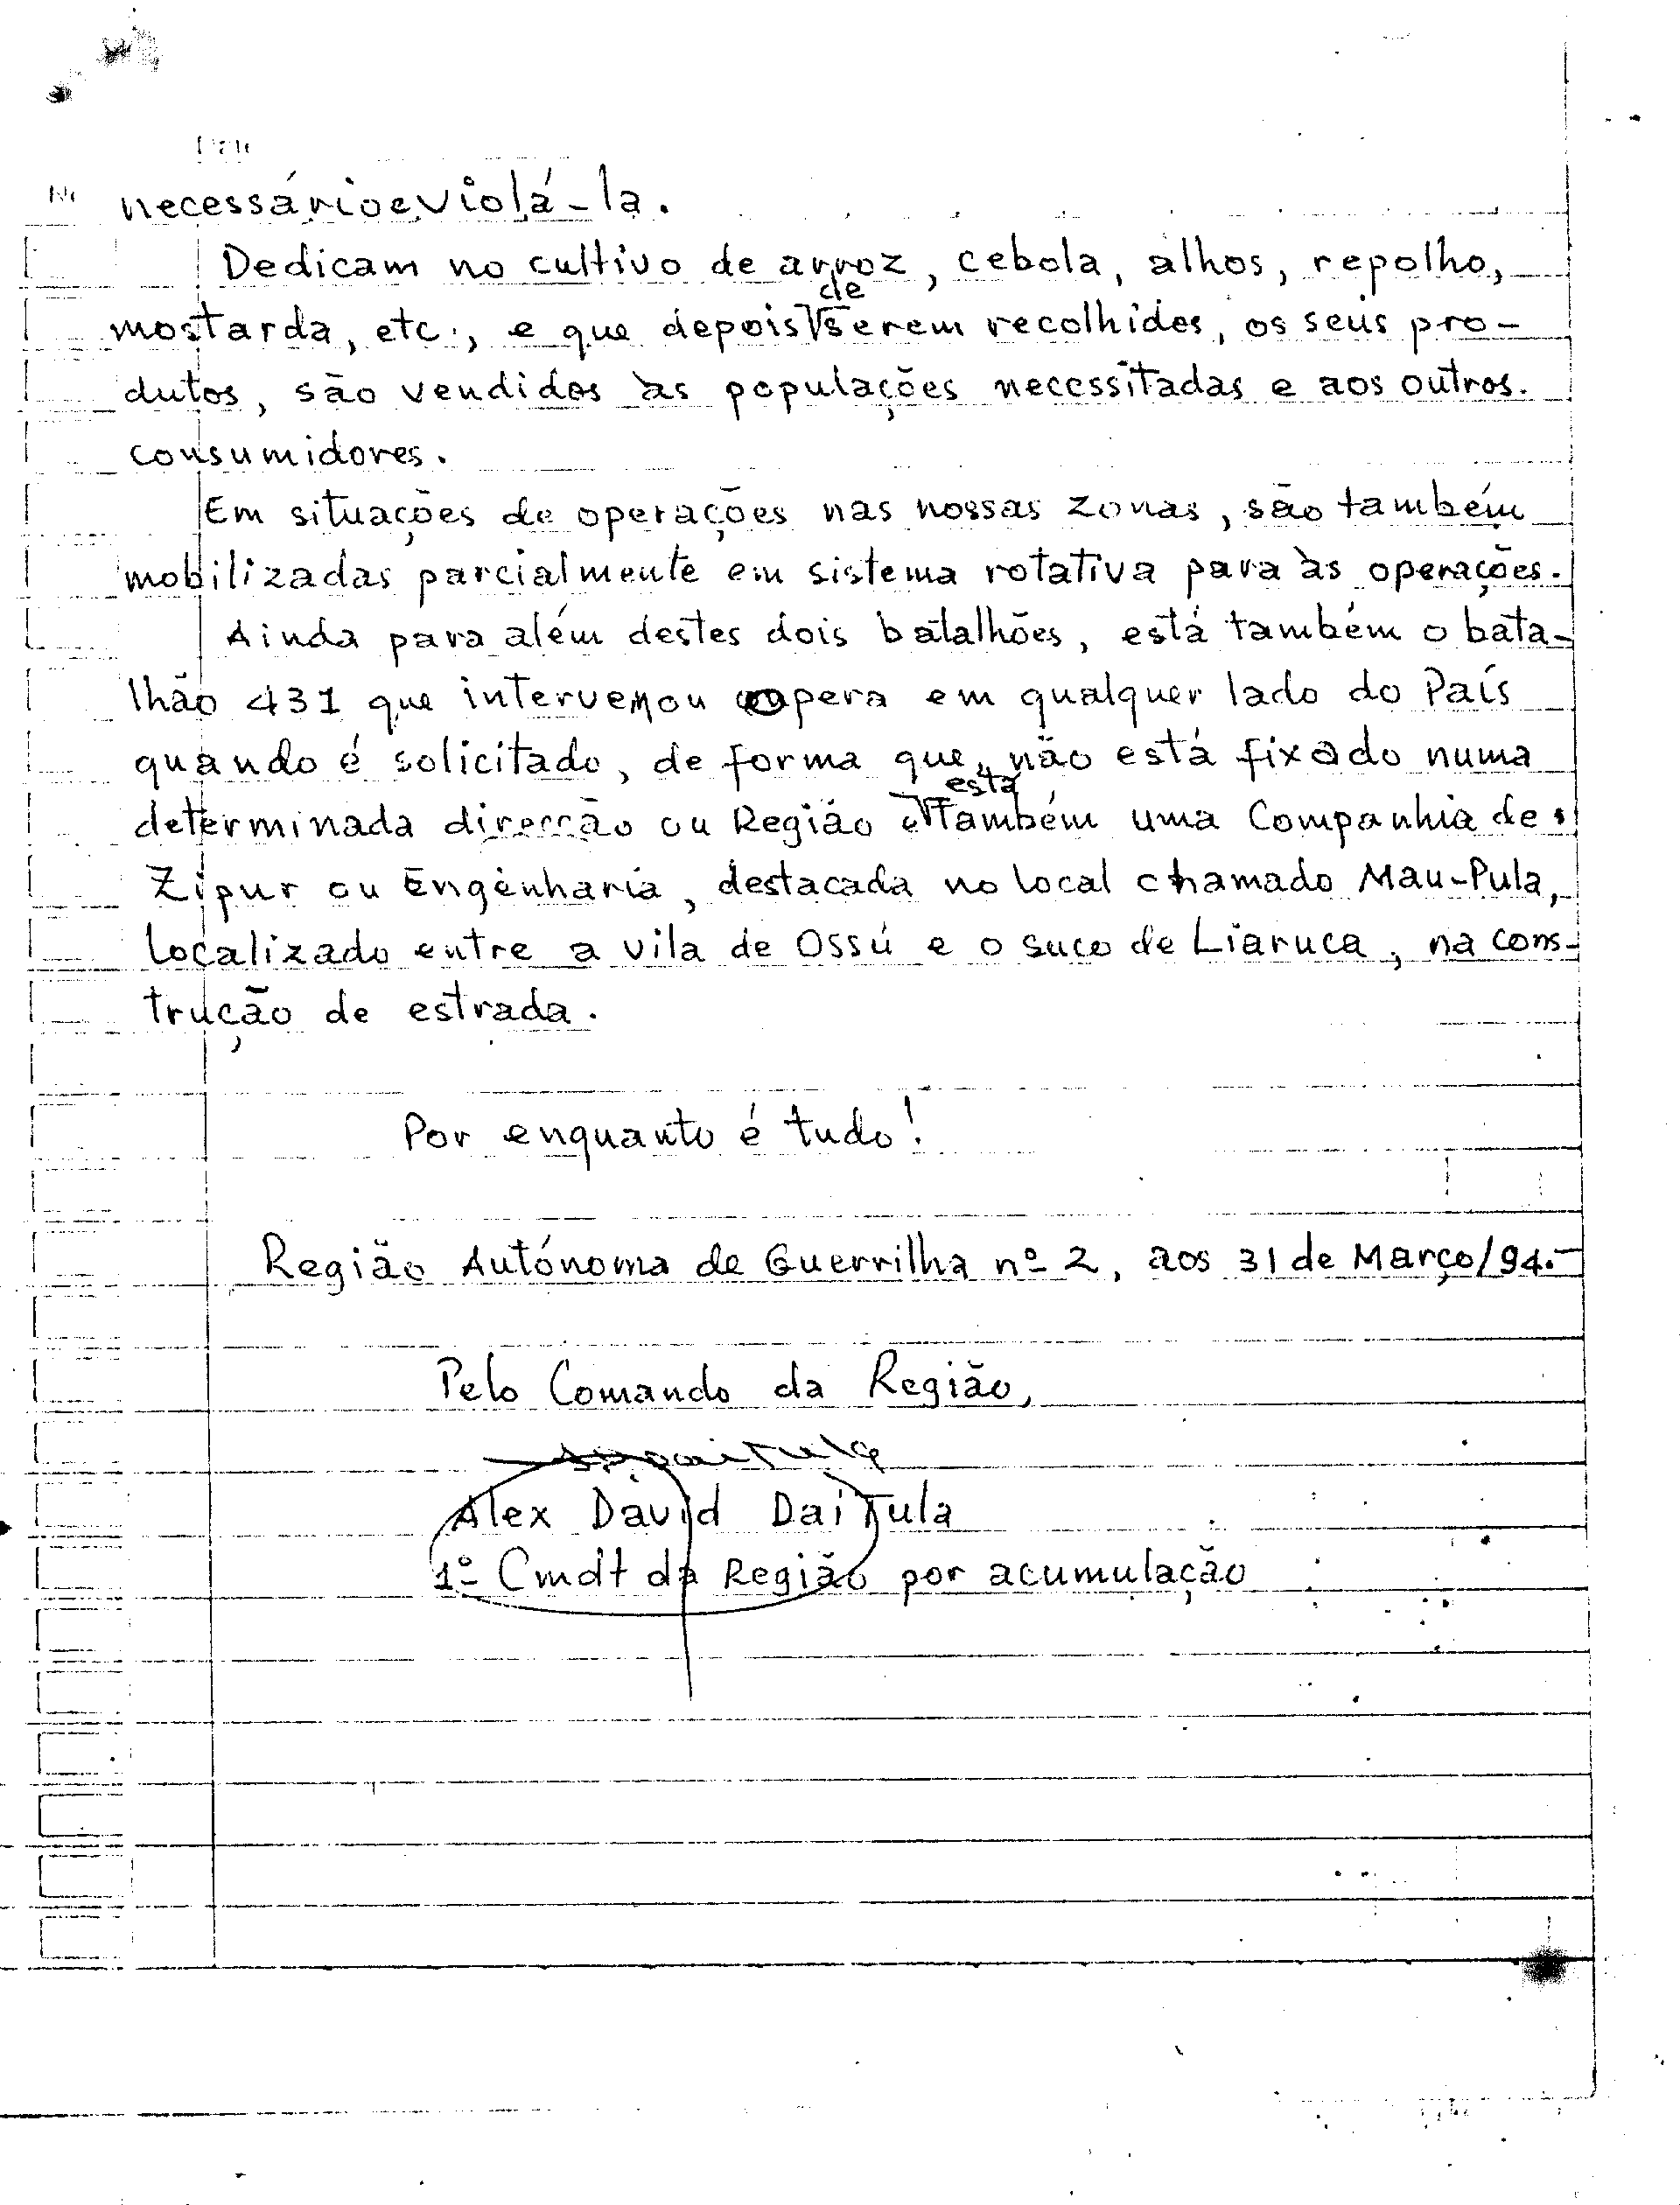 necessário e violá-la.
Dedicam no cultivo de arroz, cebola, alhos, repolho,
mostarda, etc., e que depois de serem recolhidos, os seus pro-
dutos, são vendidos às populações necessitadas e aos outros
consumidores.
Em situações de operações nas nossas zonas, são também
mobilizadas parcialmente em sistema rotativa para às operações.
Ainda para além destes dois batalhões, está também o bata-
lhão 431 que intervem ou opera em qualquer lado do País
quando é solicitado, de forma que, não está fixado numa
determinada direcção ou Região e está também uma Companhia de
Zipur ou Engenharia, destacada no local chamado Mau-Pula,
localizado entre a vila de Ossú e o suco de Liaruca, na cons-
trução de estrada.
Por enquanto é tudo!
Região Autónoma de Guerrilha nº 2, aos 31 de Março/94.-
Pelo Comando da Região,
Alex David DaiTula
1º Cmdt da Região por acumulação